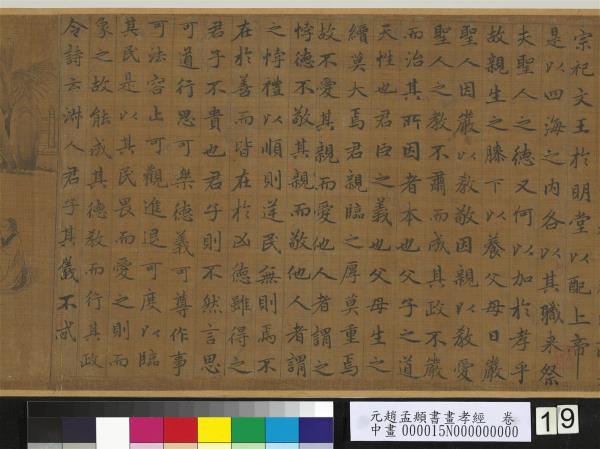 宗祀文王於明堂以配上帝
是以四海之内各以其職来祭
夫聖人之德又何以加於孝乎
故親生之膝下以養父母日嚴
聖人因嚴以教敬因親以教愛
聖人之教不肅而成其政不嚴
而治其所因者本也父子之道
天性也君臣之義也父母生之
續莫大焉君親臨之厚莫重焉
故不愛其親而愛他人者謂之
悖德不敬其親而敬他人者謂
之悖禮以順則逆民無則焉不
在於善而皆在於凶德雖得之
君子不貴也君子則不然言思
可道行思可樂德義可尊作事
可法容止可觀進退可度以臨
其民是以其民畏而愛之則而
象之故能成其德教而行其政
令詩云淑人君子其儀不忒
元趙孟頫書畫孝經 卷
中畫 000015N000000000
19